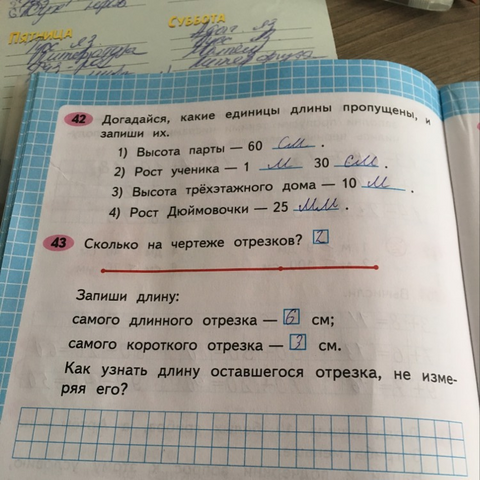 ПЯТНИЦА
СУББОТА
литература
42 Догадайся, какие единицы длины пропущены, и
запиши их.
1) Высота парты — 60 см .
2) Рост ученика — 1 м 30 см .
3) Высота трёхэтажного дома — 10 м .
4) Рост Дюймовочки — 25 мм .
43 Сколько на чертеже отрезков? 2
Запиши длину:
самого длинного отрезка — 6 см;
самого короткого отрезка — 3 см.
Как узнать длину оставшегося отрезка, не изме-
ряя его?